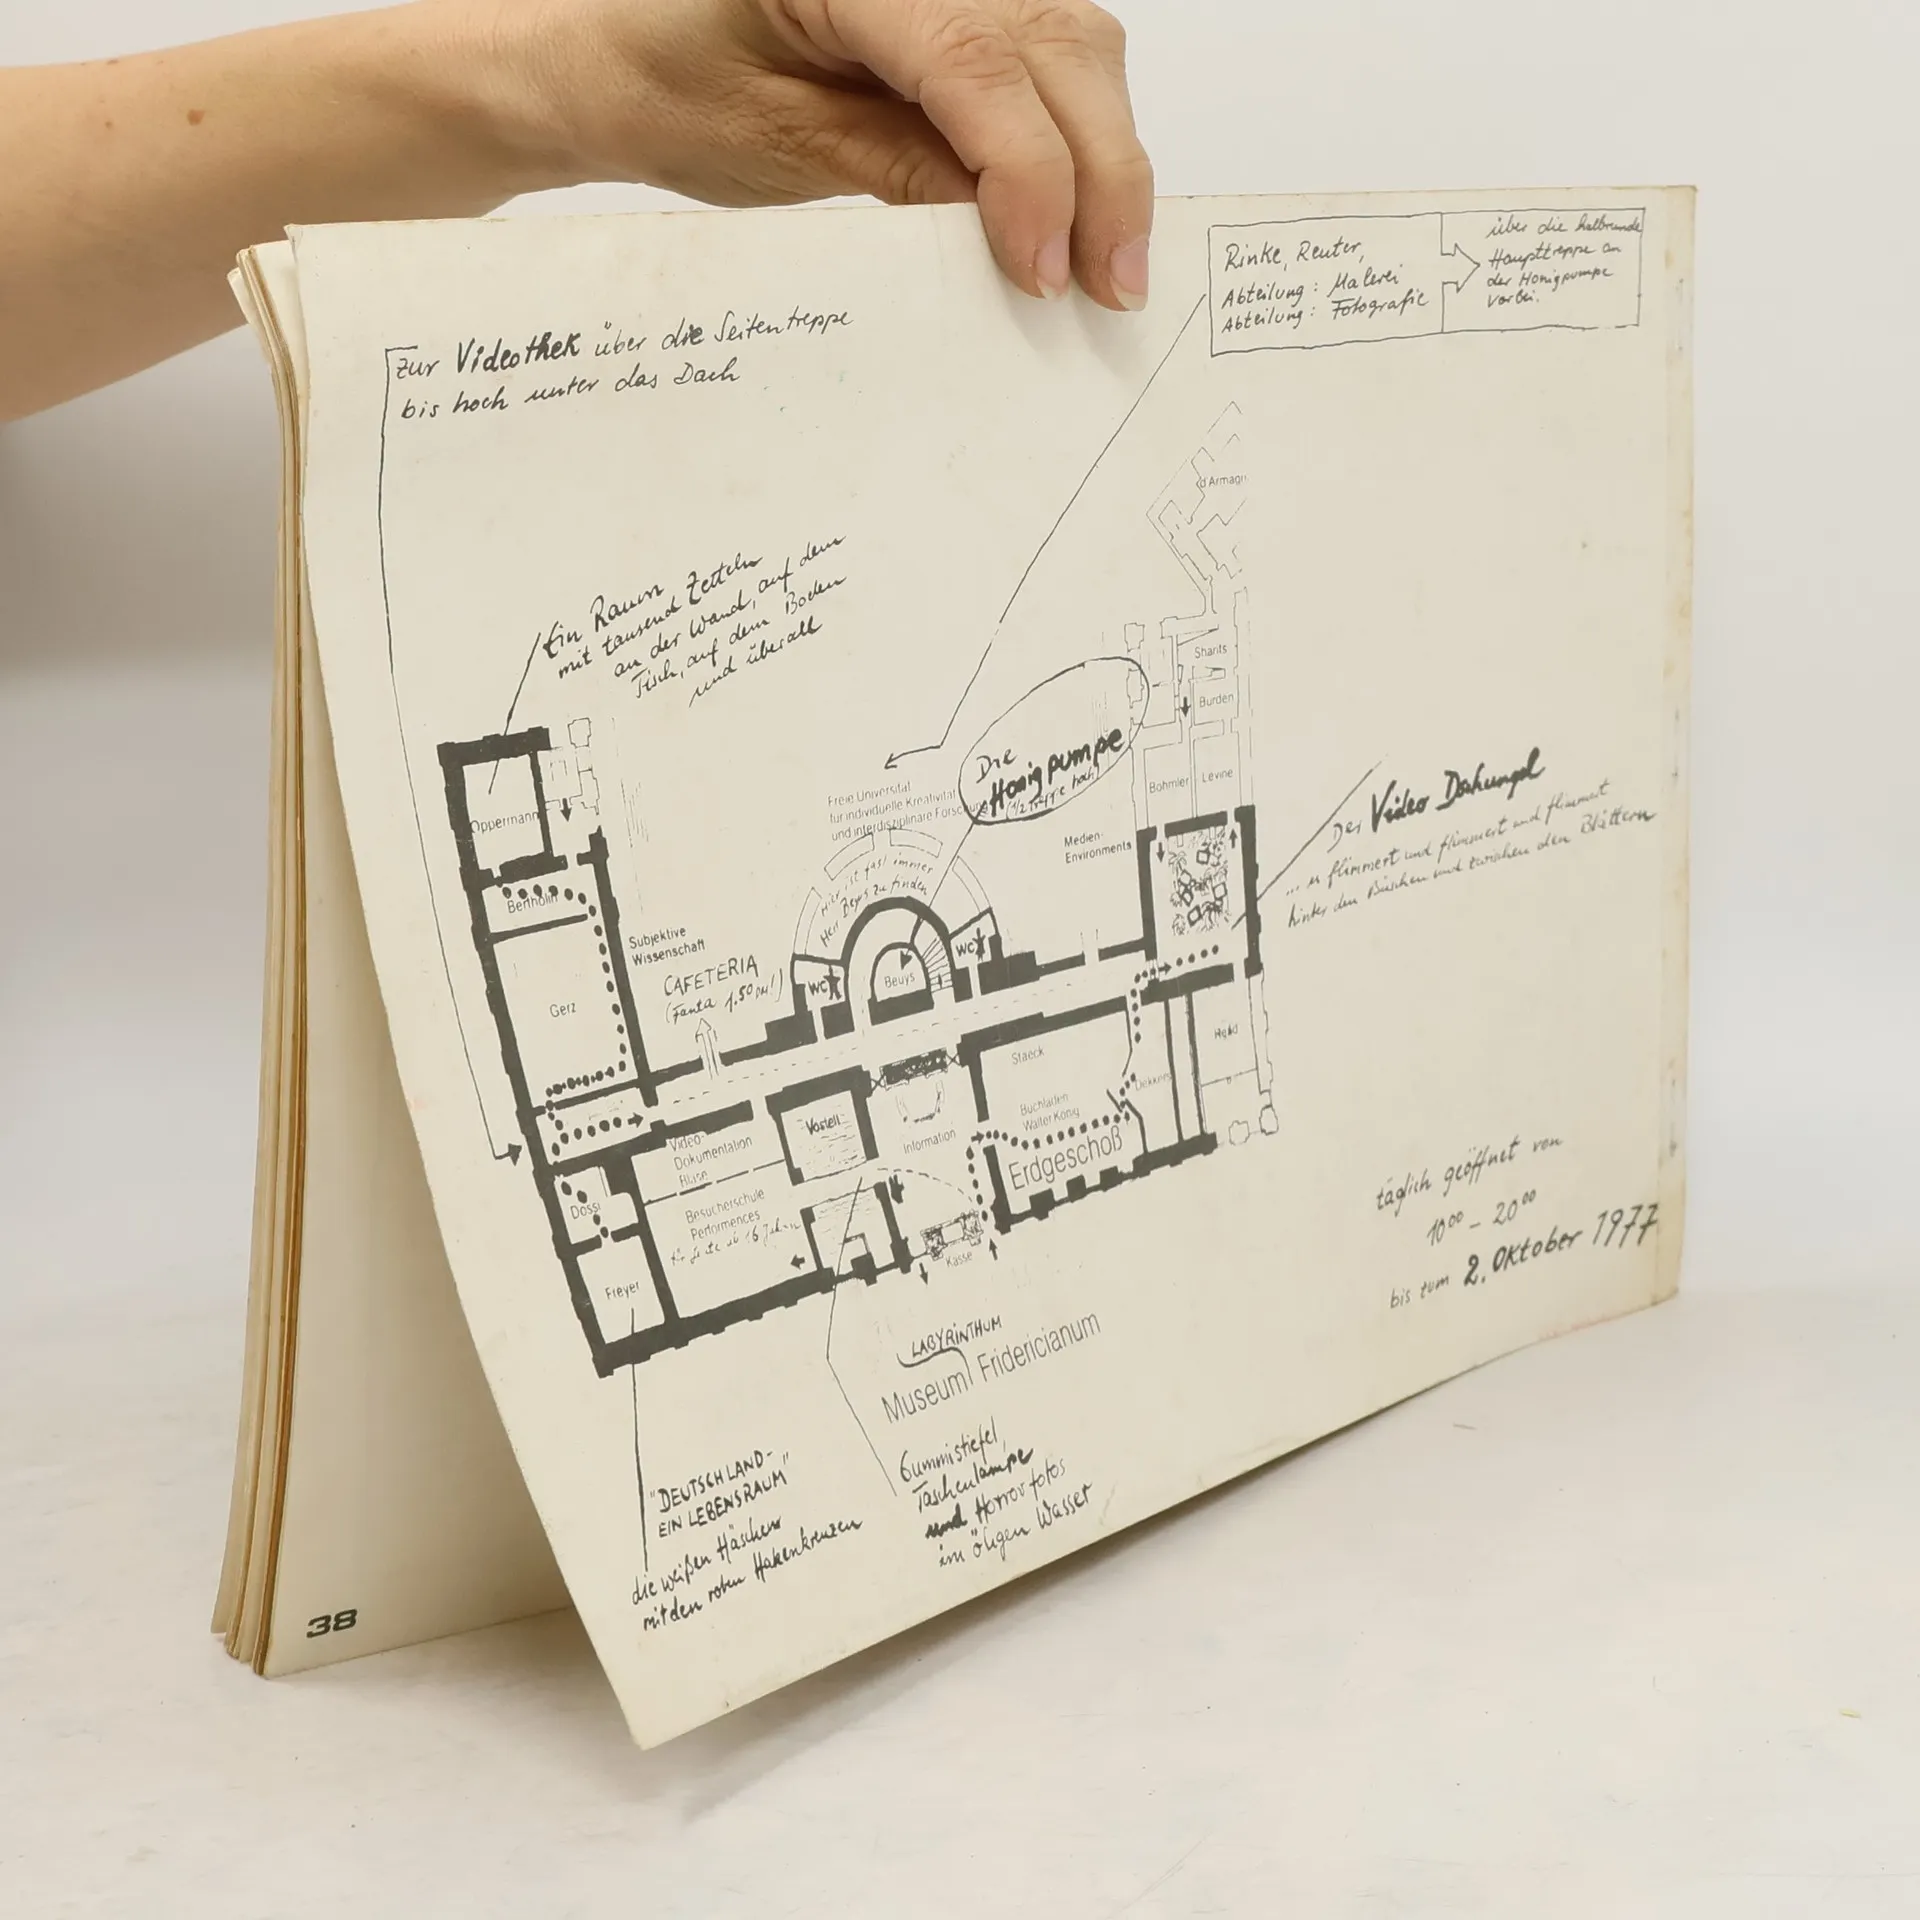 zur Videothek über die Seitentreppe
bis hoch unter das Dach
Rinke, Reuter,
Abteilung: Malerei
Abteilung: Fotografie
über die halbrunde
Haupttreppe an
der Honigpumpe
vorbei.
Ein Raum
mit tausend Zetteln
an der Wand, auf dem
Tisch, auf dem Boden
und überall
d'Armagn
Sharits
Burden
Bohmler
Levine
Die
Honigpumpe
(1/2 Treppe hoch)
Freie Universität
für individuelle Kreativität
und interdisziplinäre Forschung
Hier ist fast immer
Herr Beuys zu finden
Medien-
Environments
Der Video Dschungel
... es flimmert und flimmert und flimmert
hinter den Büschen und zwischen den Blättern
Oppermann
Bertholin
Gerz
Subjektive
Wissenschaft
CAFETERIA
(Fanta 1.50 DM!)
WC
Beuys
WC
Staeck
Buchladen
Walter König
Erdgeschoß
Dekkers
Vostell
Information
Video-
Dokumentation
Besucherschule
Performences
für Leute ab 16 Jahren
Dossi
Freyer
Kasse
täglich geöffnet von
10⁰⁰ – 20⁰⁰
bis zum 2. Oktober 1977
LABYRINTHUM
Museum Fridericianum
Gummistiefel,
Taschenlampe
und Horrorfotos
im öligen Wasser
"DEUTSCHLAND-
EIN LEBENSRAUM"
die weißen Häschen
mit den roten Hakenkreuzen
38